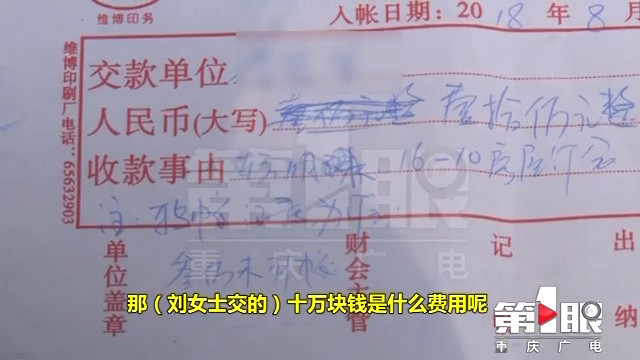 维博印务
入帐日期：2018年8月
维博印刷厂电话：65632903
交款单位
人民币(大写) 壹拾万元整
收款事由 16-10房屋订金
单位盖章
财会主管
记
出纳
第1眼
重庆广电
那（刘女士交的）十万块钱是什么费用呢
第1眼
重庆广电